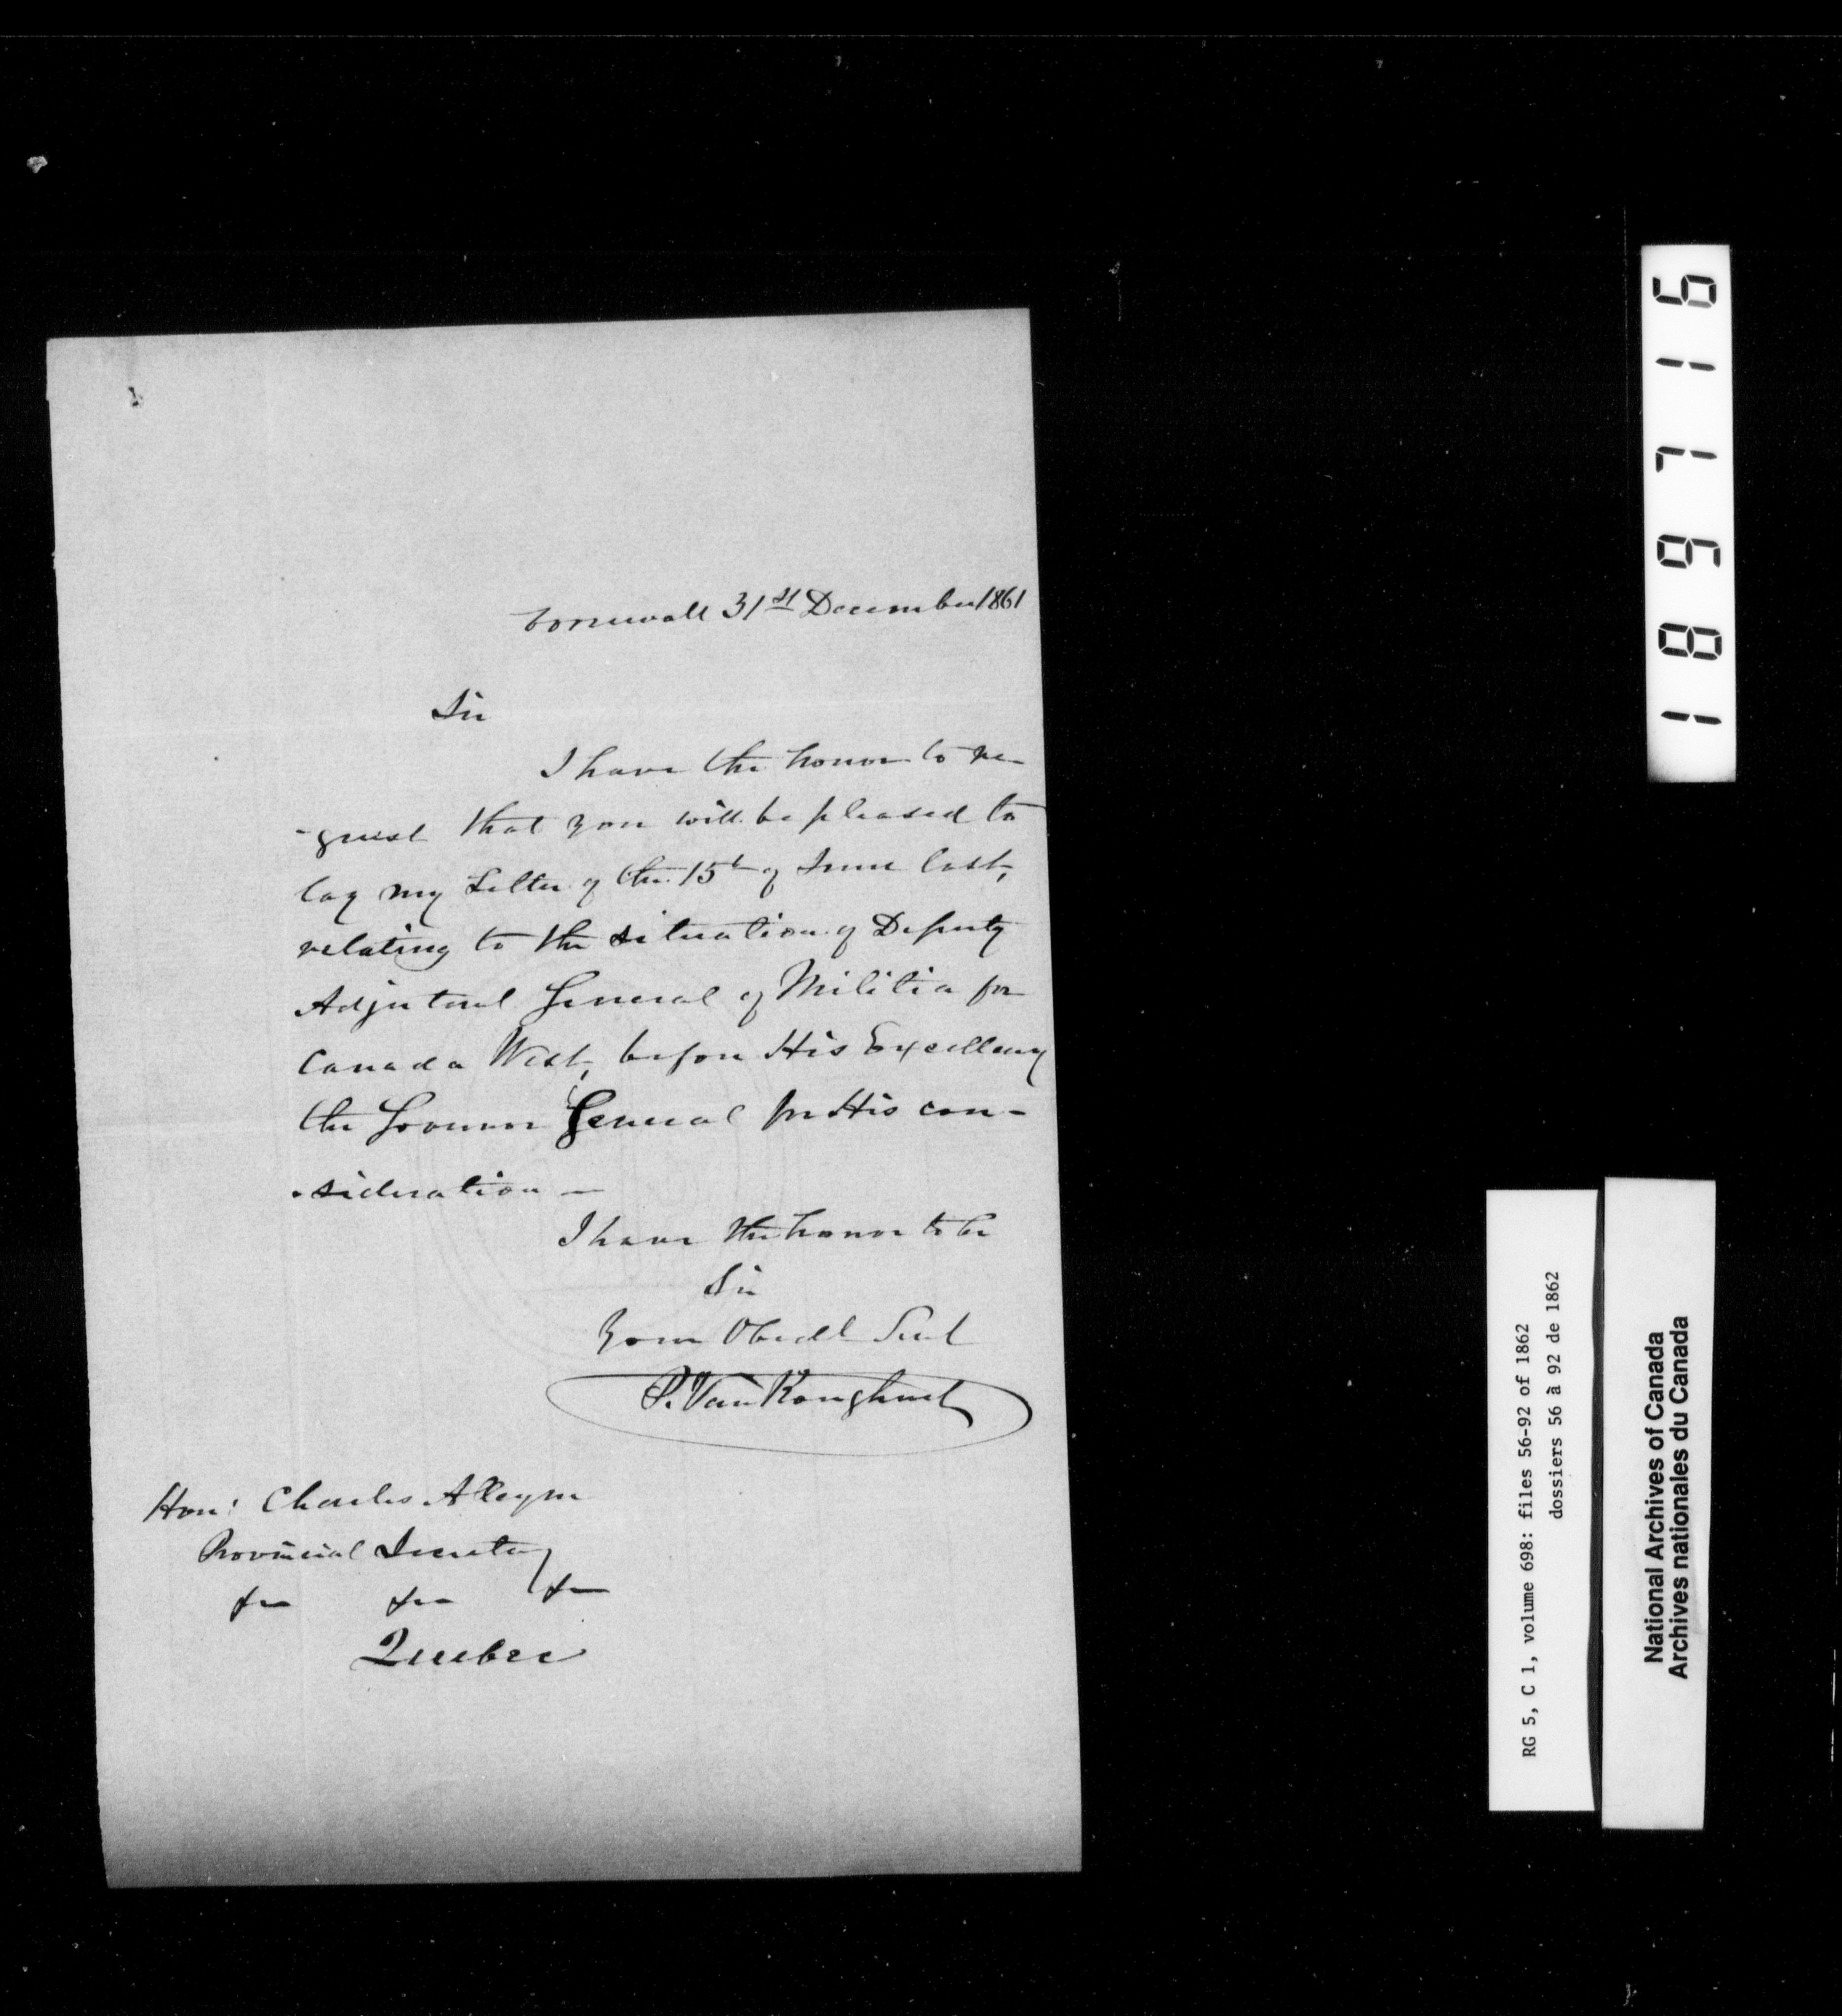 Cornwall 31st December 1861
Sir
I have the honor to re-
-quest that you will be pleased to
lay my Letter of the 15th of June last,
relating to the situation of Deputy
Adjutant General of Militia for
Canada West, before His Excellency
the Governor General for His con-
-sideration —
I have the honor to be
Sir
Your Obedt Servt
P. VanKoughnet
Hon: Charles Alleyn
Provincial Secretary
&c &c &c
Quebec
RG 5, C 1, volume 698: files 56-92 of 1862
dossiers 56 à 92 de 1862
National Archives of Canada
Archives nationales du Canada